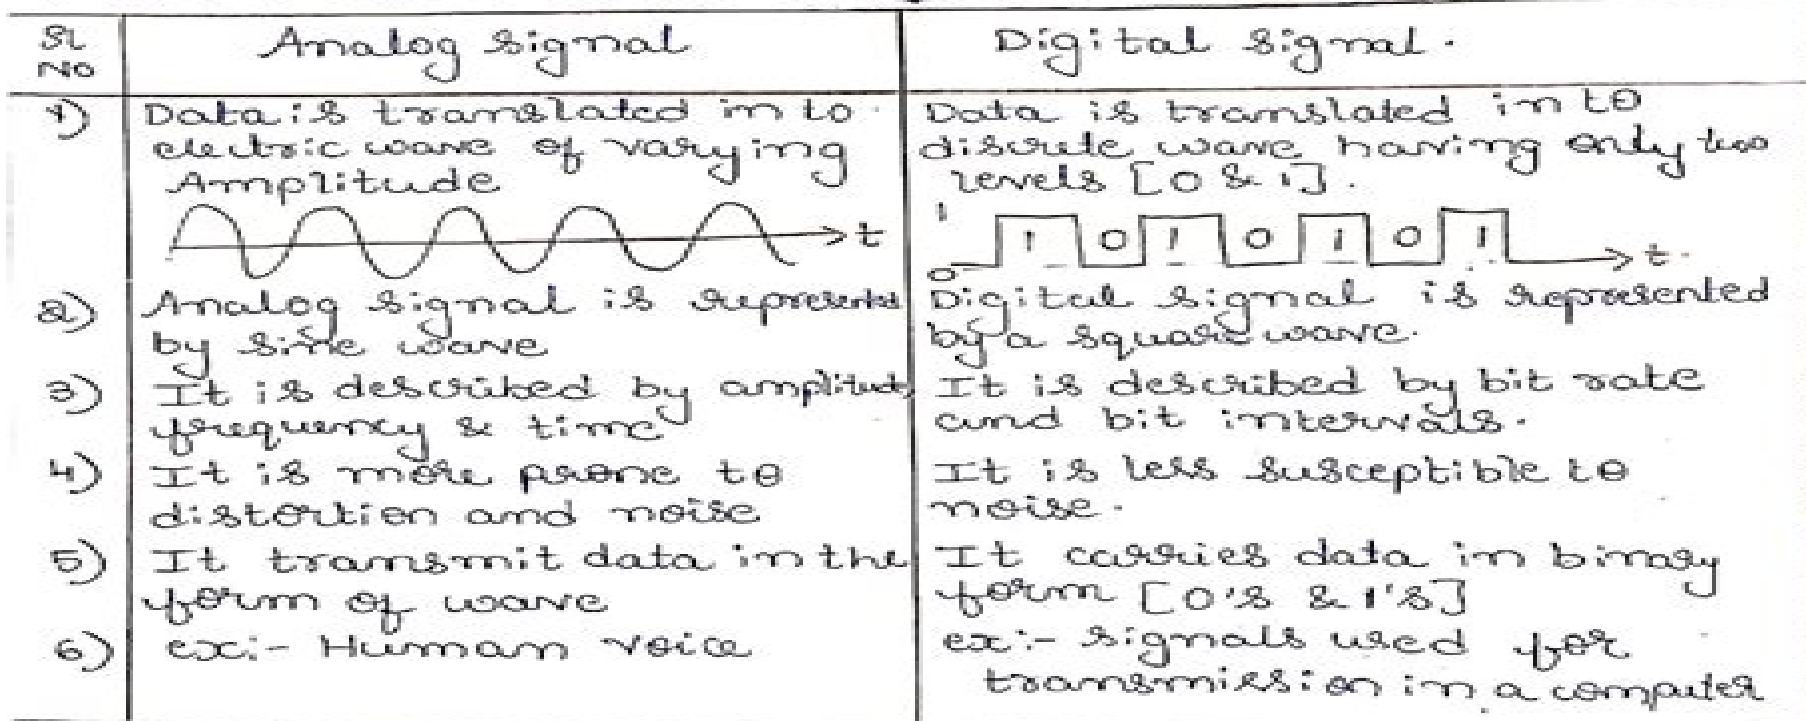 Sl No
Analog signal
Digital signal.
1)
Data is translated in to
electric wave of varying
Amplitude
t
Data is translated in to
discrete wave having only two
levels [0 & 1].
1
1 0 1 0 1 0 1
0
t
2)
Analog signal is represented
by sine wave
Digital signal is represented
by a square wave.
3)
It is described by amplitude
frequency & time
It is described by bit rate
and bit intervals.
4)
It is more prone to
distortion and noise
It is less susceptible to
noise.
5)
It transmit data in the
form of wave
It carries data in binary
form [0's & 1's]
6)
ex:- Human voice
ex:- signals used for
transmission in a computer